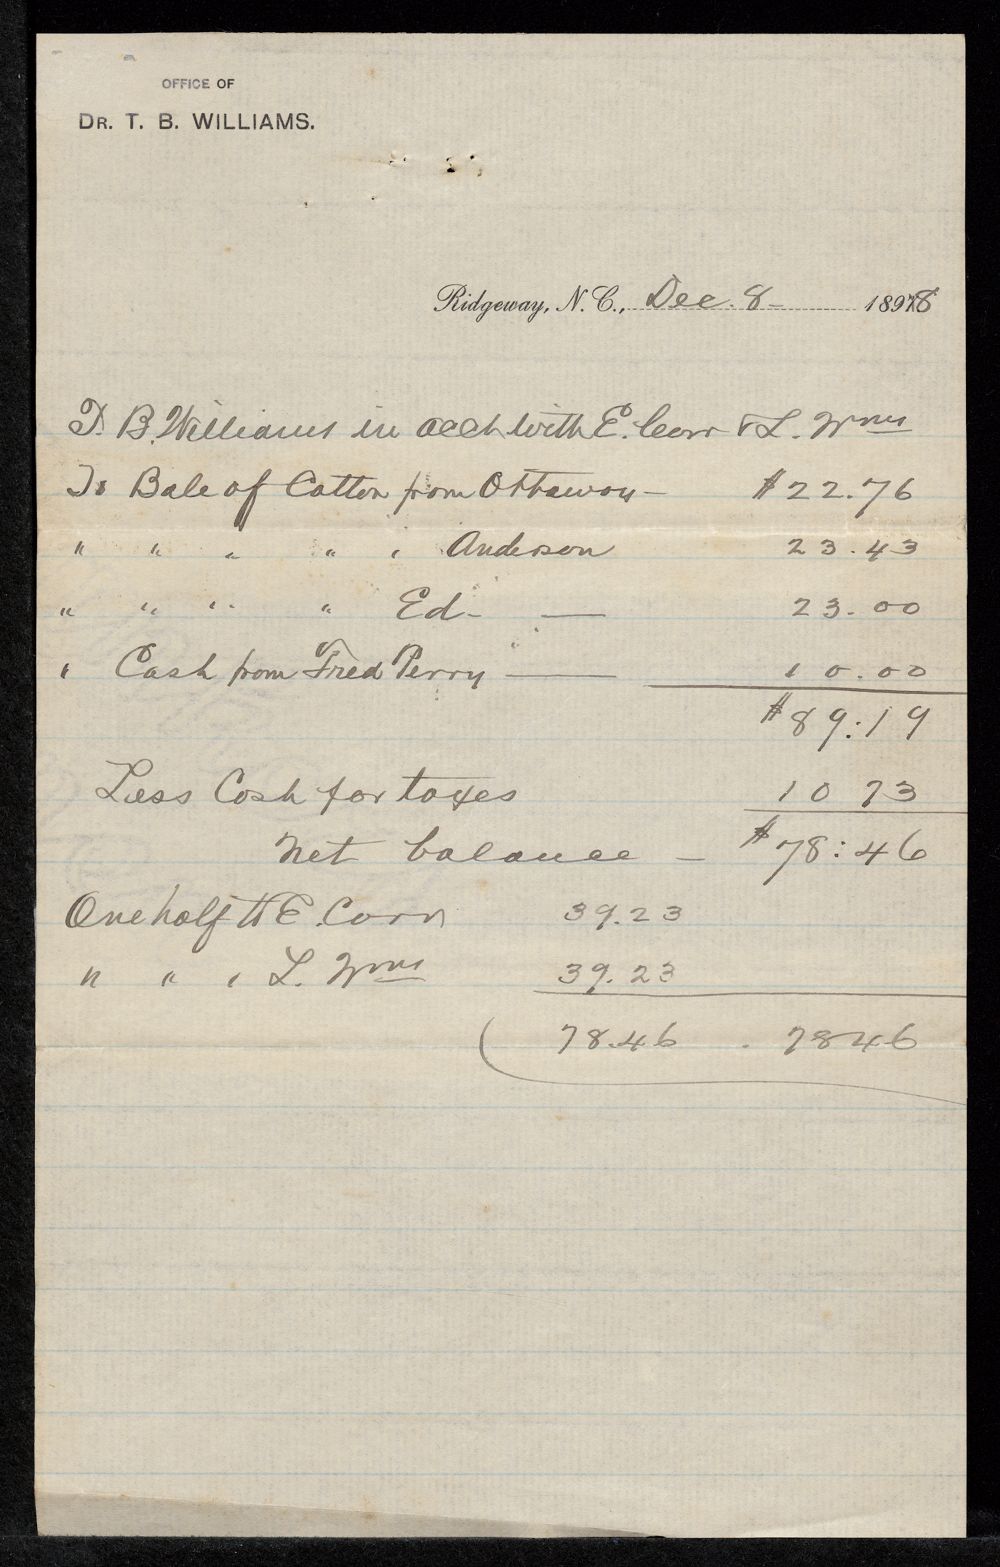 OFFICE OF
DR. T. B. WILLIAMS.
Ridgeway, N. C., Dec. 8 1898
T. B. Williams in acct with E. Corr & L. Wms
To Bale of Cotton from Ottaway — $22.76
" " " " " Anderson 23.43
" " " " Ed — 23.00
" Cash from Fred Perry — 10.00
$89:19
Less Cash for taxes 10 73
Net balance — $78:46
One half to E. Corr 39.23
" " " L. Wms 39.23
78.46 . 7846